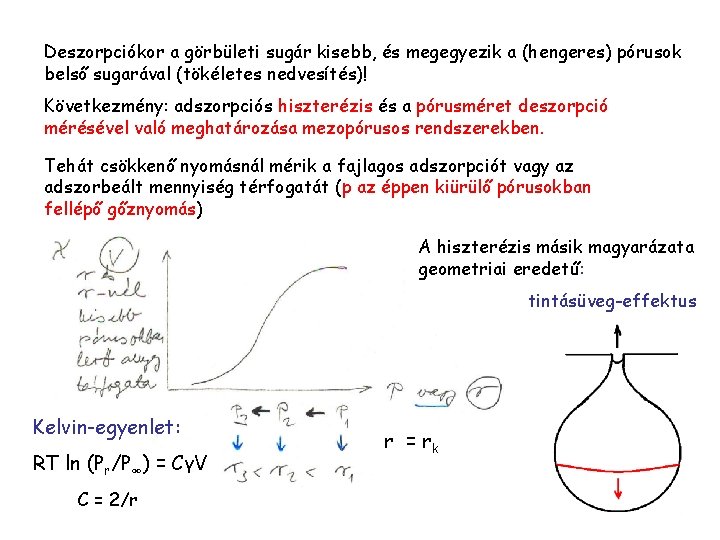 Deszorpciókor a görbületi sugár kisebb, és megegyezik a (hengeres) pórusok
belső sugarával (tökéletes nedvesítés)!
Következmény: adszorpciós hiszterézis és a pórusméret deszorpció
mérésével való meghatározása mezopórusos rendszerekben.
Tehát csökkenő nyomásnál mérik a fajlagos adszorpciót vagy az
adszorbeált mennyiség térfogatát (p az éppen kiürülő pórusokban
fellépő gőznyomás)
A hiszterézis másik magyarázata
geometriai eredetű:
tintásüveg-effektus
V
r és
r-nél
kisebb
pórusokban
térfogata
p vagy r
P₃ ← P₂ ← P₁
r₃ < r₂ < r₁
Kelvin-egyenlet:
RT ln (Pᵣ/P∞) = CγV
C = 2/r
r = rₖ